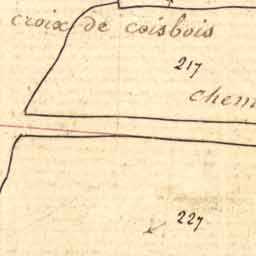 croix de coisbois
217
chem
227